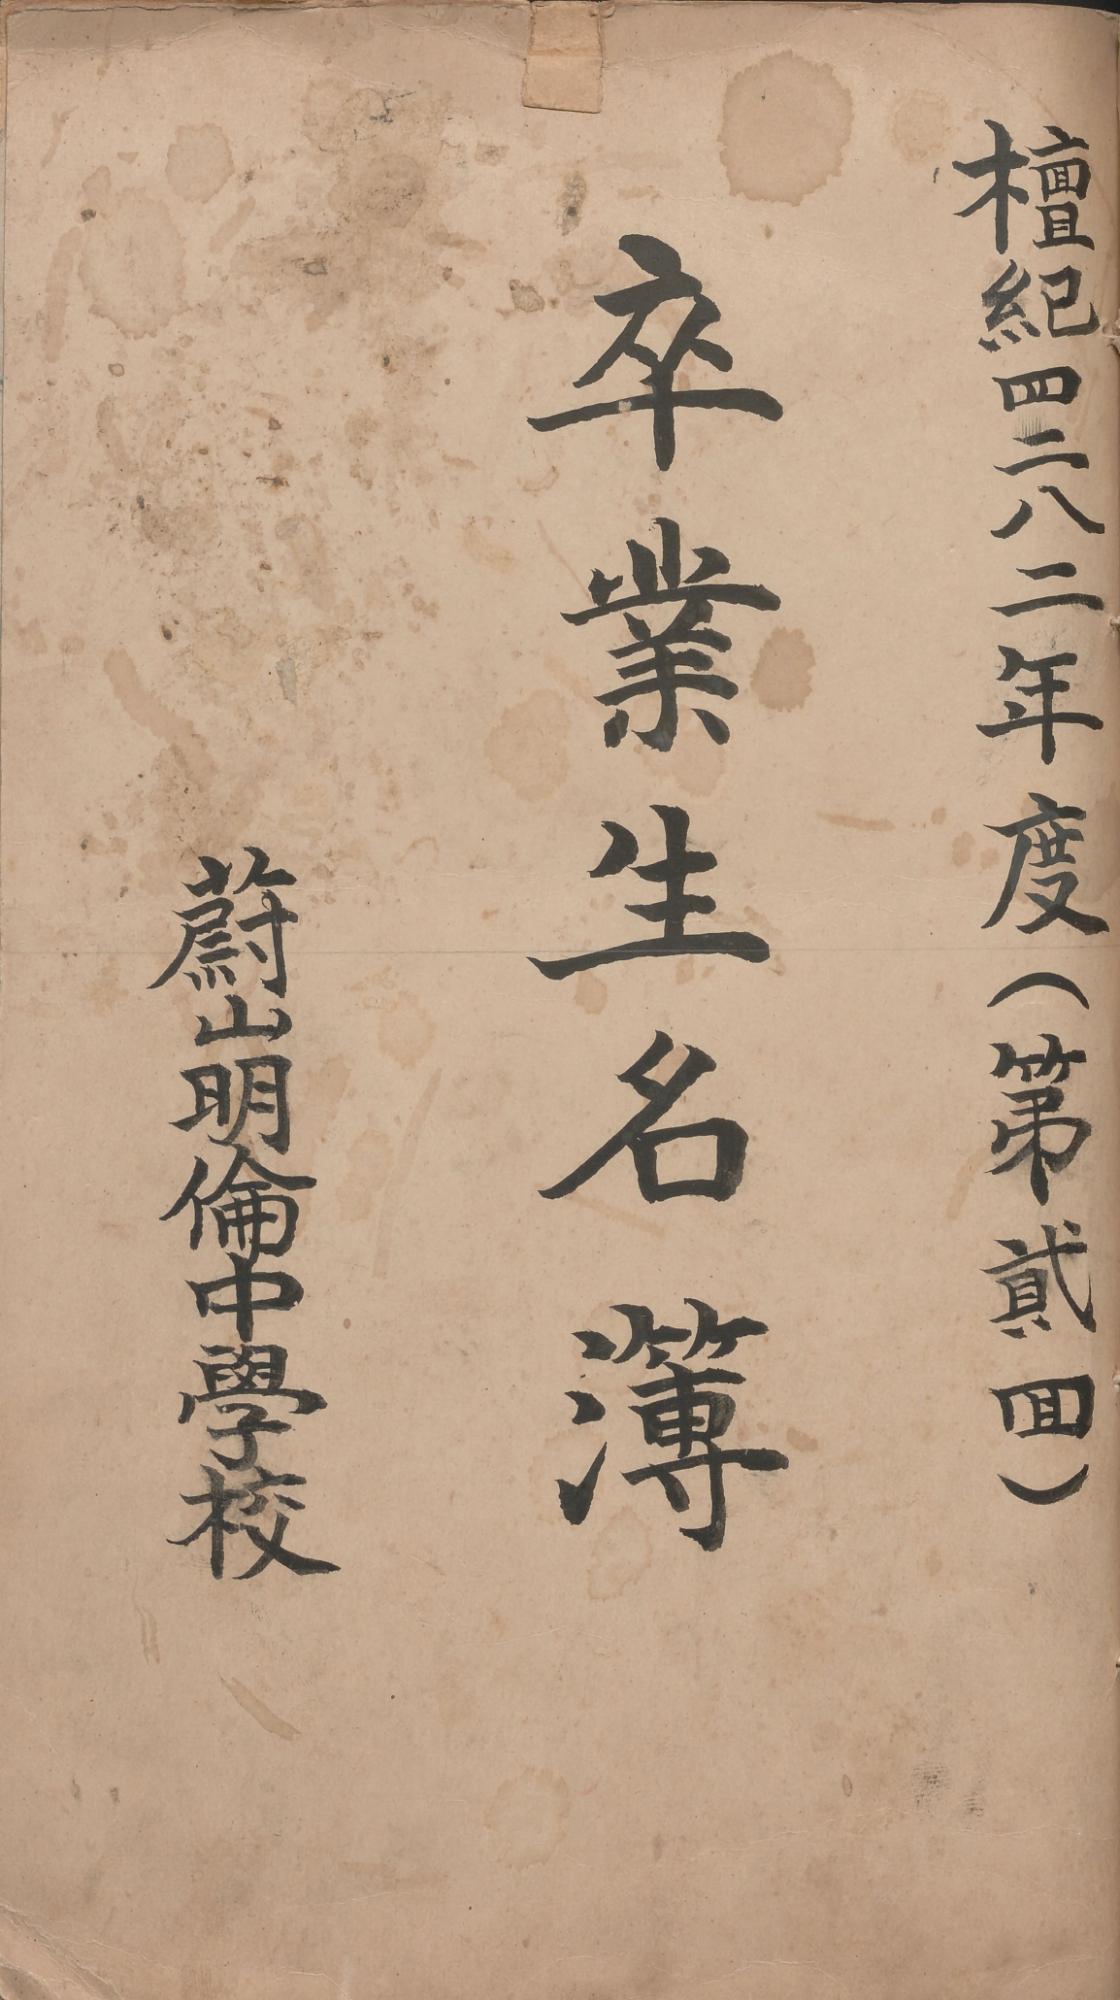 檀紀四二八二年度(第貳回)
卒業生名簿
蔚山明倫中學校